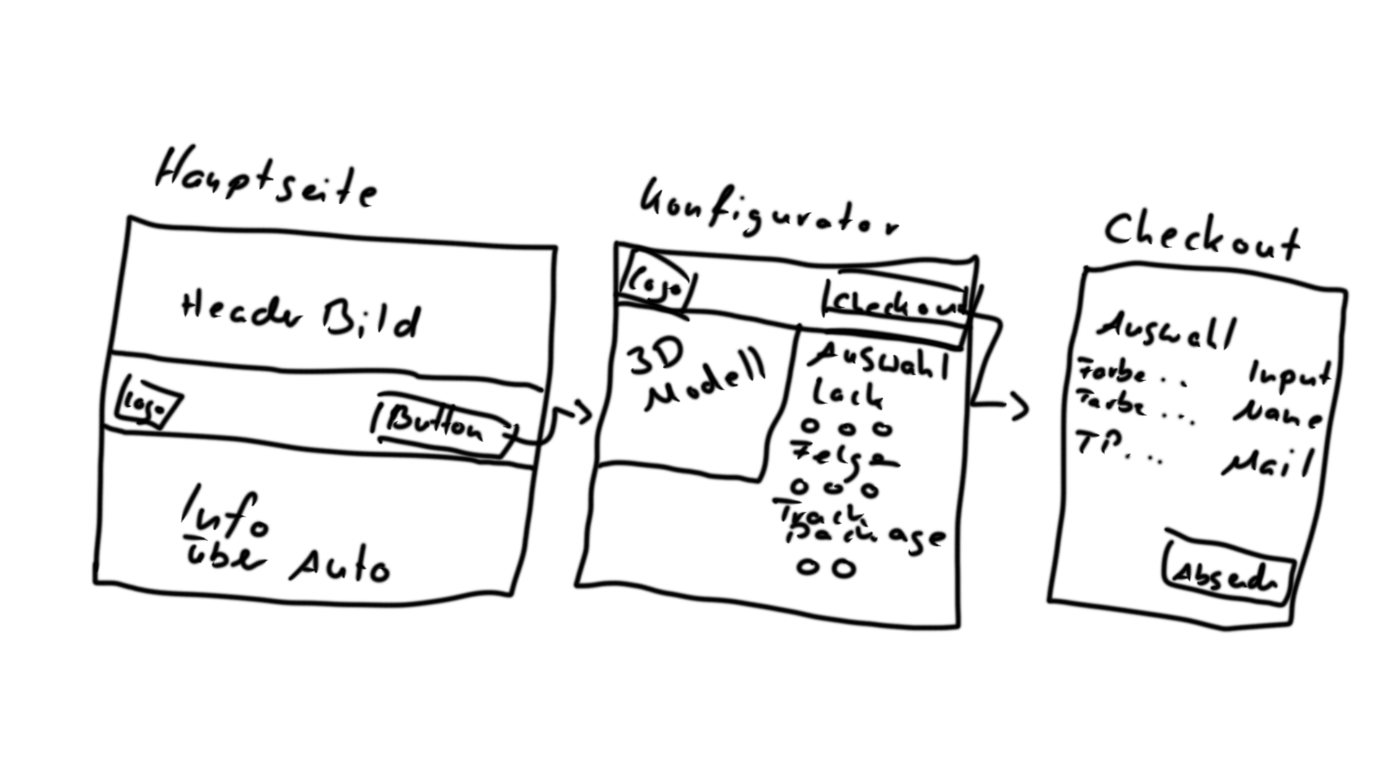 Hauptseite
Header Bild
Logo
Button
Info
über Auto
Konfigurator
Logo
Checkout
3D
Modell
Auswahl
Lack
Felgen
Track
Package
Checkout
Auswahl
Farbe ..
Farbe ...
TP....
Input
Name
Mail
Absenden